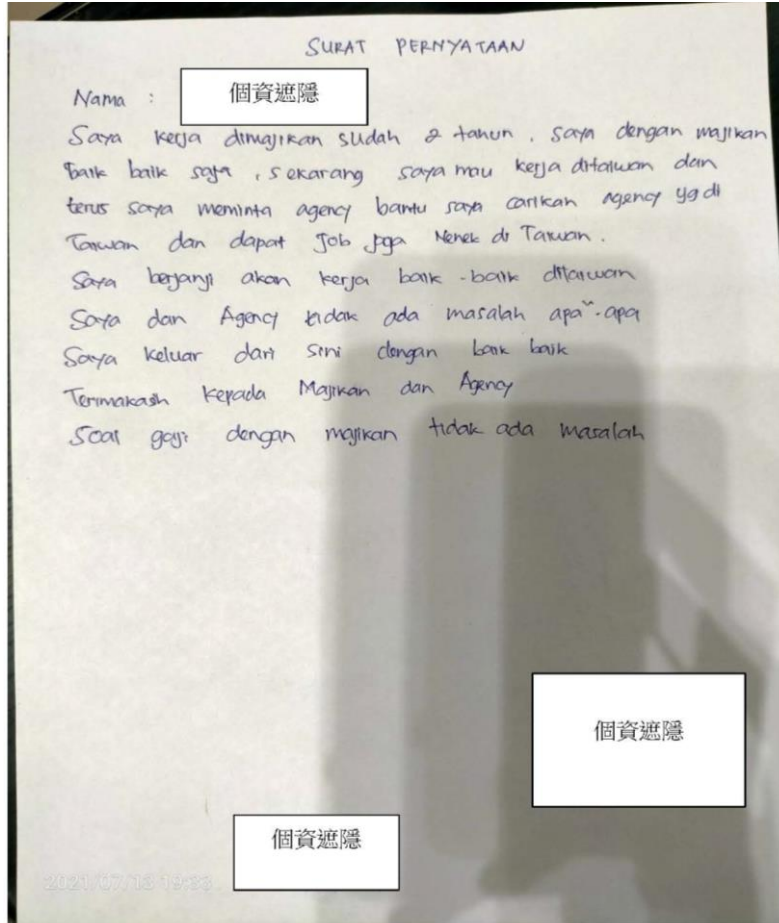 SURAT PERNYATAAN
Nama : 個資遮隱
Saya kerja dimajikan sudah 2 tahun . saya dengan majikan
baik baik saja , sekarang saya mau kerja ditaiwan dan
terus saya meminta agency bantu saya carikan Agency yg di
Taiwan dan dapat Job jaga Nenek di Taiwan .
Saya berjanji akan kerja baik - baik ditaiwan
Saya dan Agency tidak ada masalah apa"-apa
Saya keluar dari sini dengan baik baik
Terimakash kepada Majikan dan Agency
Soal gaji dengan majikan tidak ada masalah
個資遮隱
個資遮隱
2021/07/13 19:33